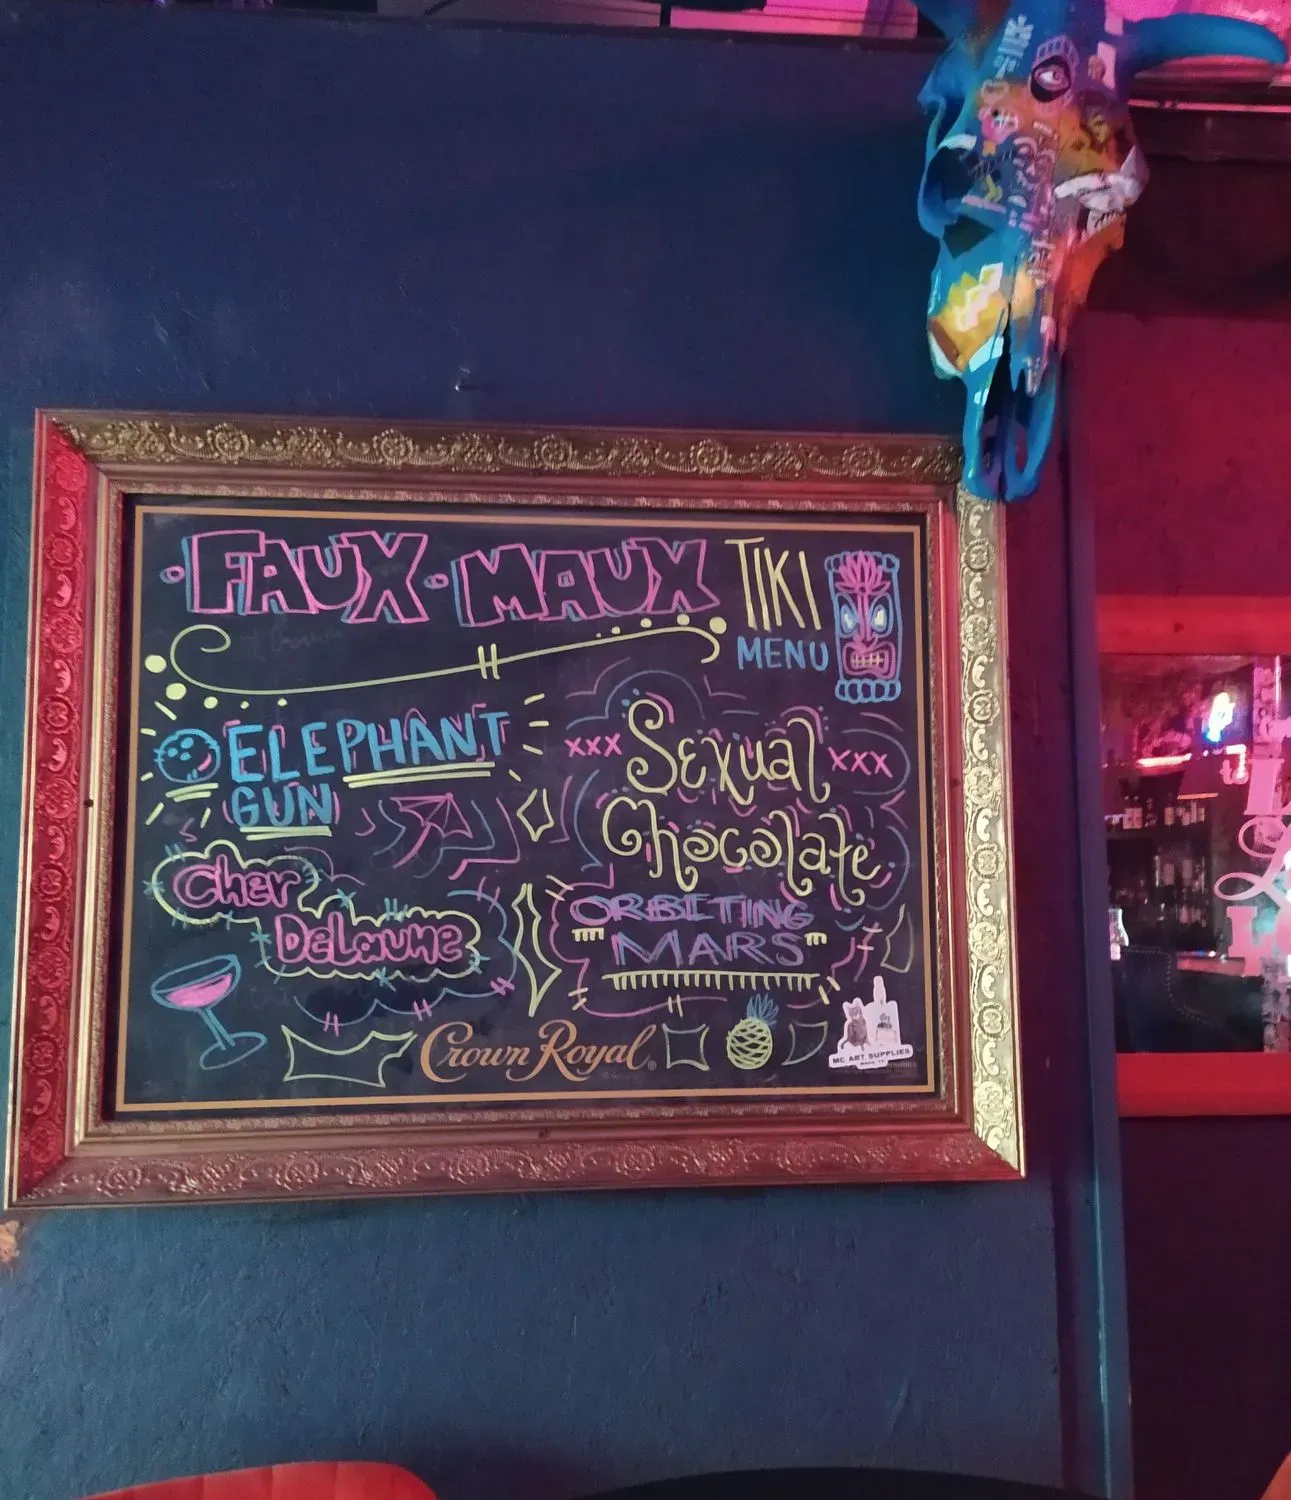 ·FAUX·MAUX TIKI
MENU
ELEPHANT
GUN
xxx Sexual xxx
Chocolate
Cher
DeLaune
ORBITING
MARS
Crown Royal®
MC ART SUPPLIES